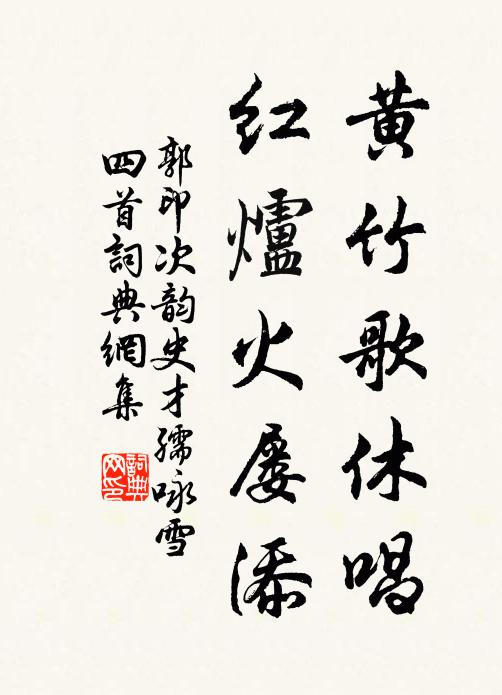 黄竹歌休唱
紅爐火屡添
郭印次韵史才孺咏雪
四首詞典網集
詞典
网印